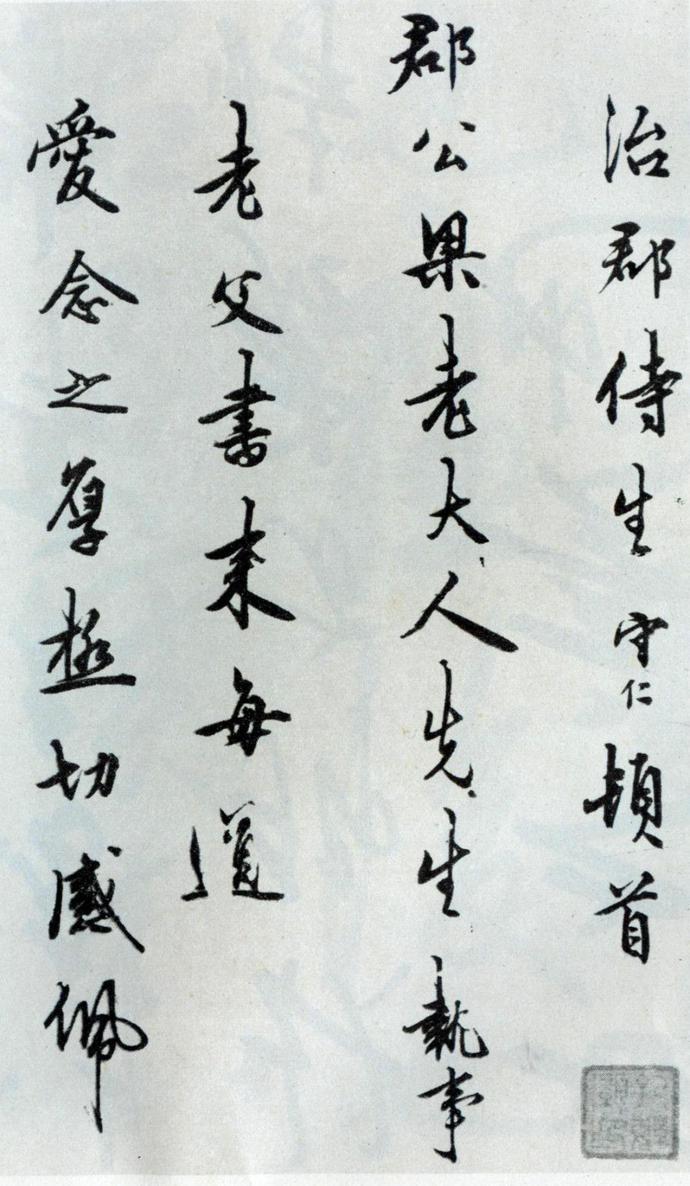 治郡侍生守仁頓首
郡公梁老大人先生執事
老父書来每道
愛念之厚極切感佩